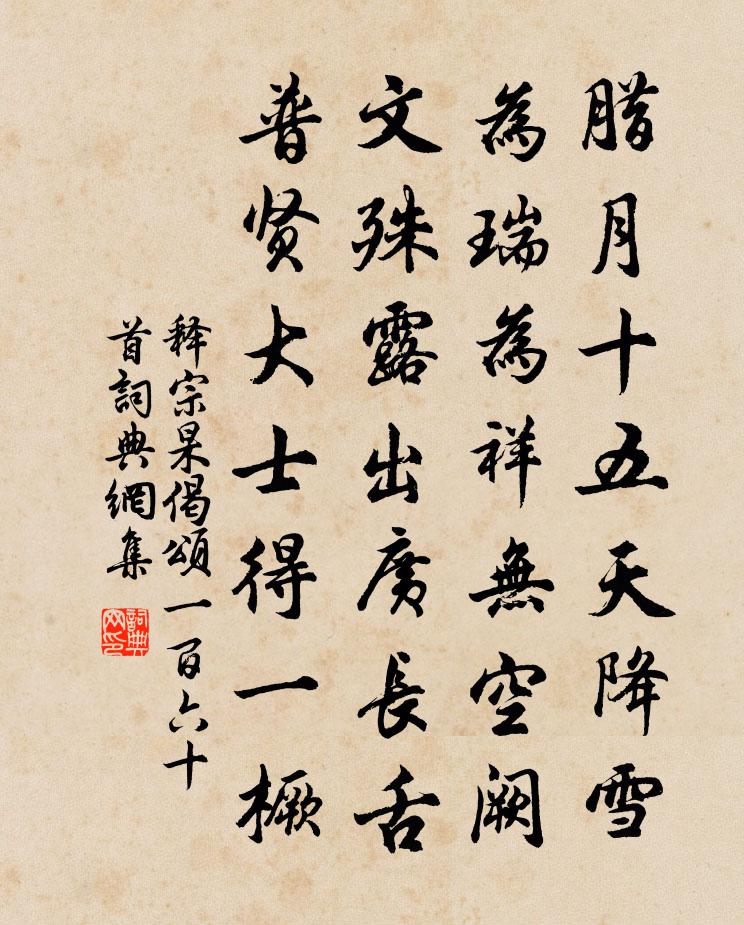 腊月十五天降雪
為瑞為祥無空阙
文殊露出廣長舌
普贤大士得一橛
释宗杲偈頌一百六十
首詞典網集
詞典網印